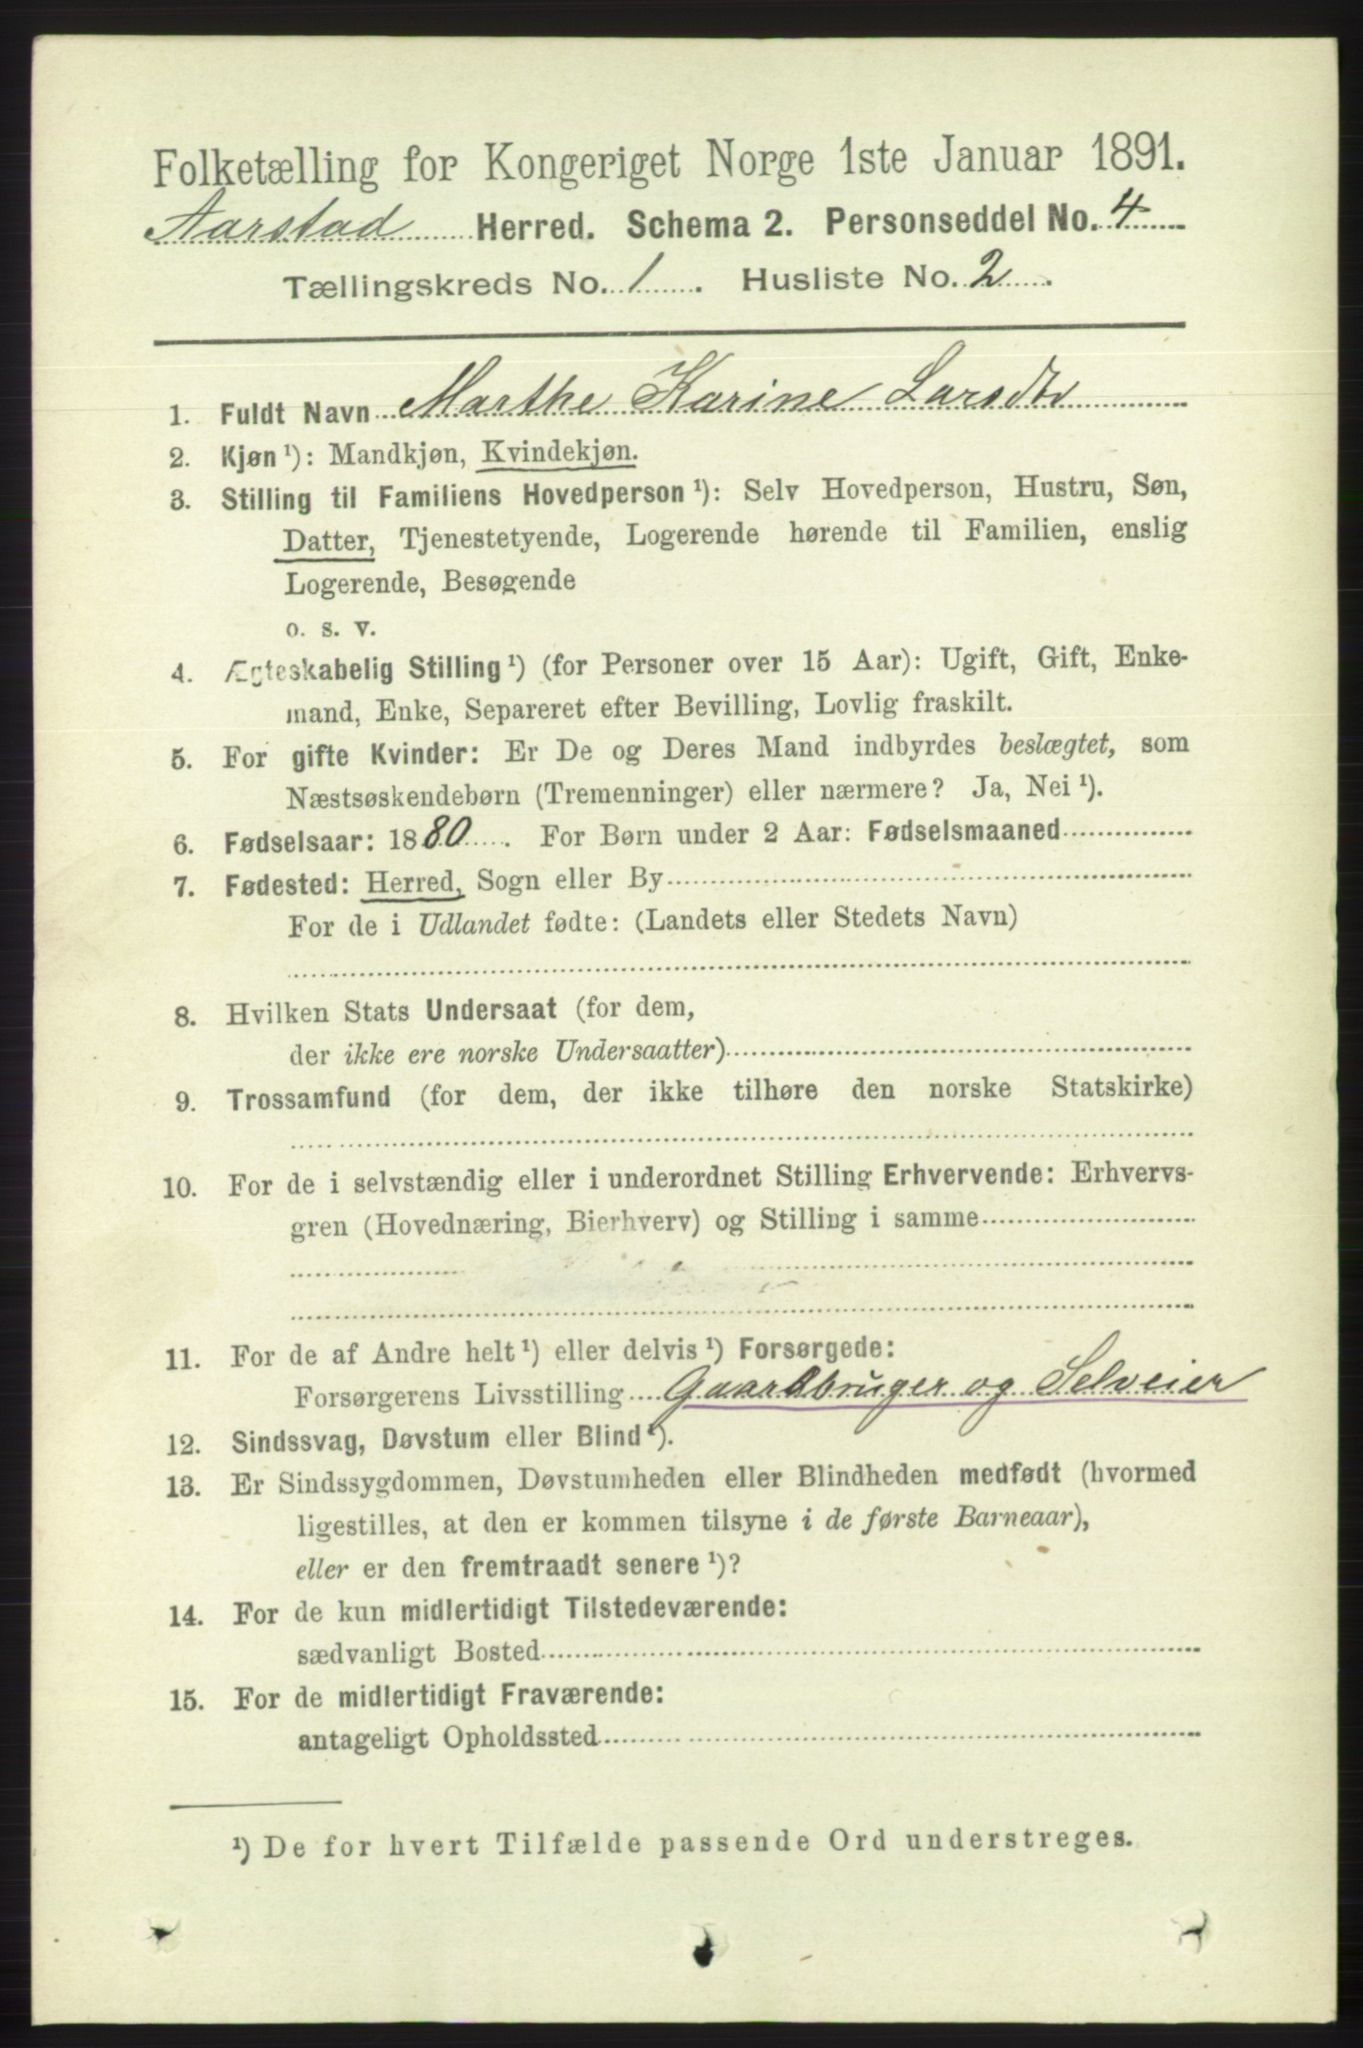 Folketælling for Kongeriget Norge 1ste Januar 1891.
Aarstad Herred. Schema 2. Personseddel No. 4
Tællingskreds No. 1. Husliste No. 2.
1. Fuldt Navn Marthe Karine Larsdtr
2. Kjøn ¹): Mandkjøn, Kvindekjøn.
3. Stilling til Familiens Hovedperson ¹): Selv Hovedperson, Hustru, Søn,
Datter, Tjenestetyende, Logerende hørende til Familien, enslig
Logerende, Besøgende
o. s. v.
4. Ægteskabelig Stilling ¹) (for Personer over 15 Aar): Ugift, Gift, Enke-
mand, Enke, Separeret efter Bevilling, Lovlig fraskilt.
5. For gifte Kvinder: Er De og Deres Mand indbyrdes beslægtet, som
Næstsøskendebørn (Tremenninger) eller nærmere? Ja, Nei ¹).
6. Fødselsaar: 1880. For Børn under 2 Aar: Fødselsmaaned
7. Fødested: Herred, Sogn eller By
For de i Udlandet fødte: (Landets eller Stedets Navn)
8. Hvilken Stats Undersaat (for dem,
der ikke ere norske Undersaatter)
9. Trossamfund (for dem, der ikke tilhøre den norske Statskirke)
10. For de i selvstændig eller i underordnet Stilling Erhvervende: Erhvervs-
gren (Hovednæring, Bierhverv) og Stilling i samme
11. For de af Andre helt ¹) eller delvis ¹) Forsørgede:
Forsørgerens Livsstilling Gaardbruger og Selveier
12. Sindssvag, Døvstum eller Blind ¹).
13. Er Sindssygdommen, Døvstumheden eller Blindheden medfødt (hvormed
ligestilles, at den er kommen tilsyne i de første Barneaar),
eller er den fremtraadt senere ¹)?
14. For de kun midlertidigt Tilstedeværende:
sædvanligt Bosted
15. For de midlertidigt Fraværende:
antageligt Opholdssted
¹) De for hvert Tilfælde passende Ord understreges.